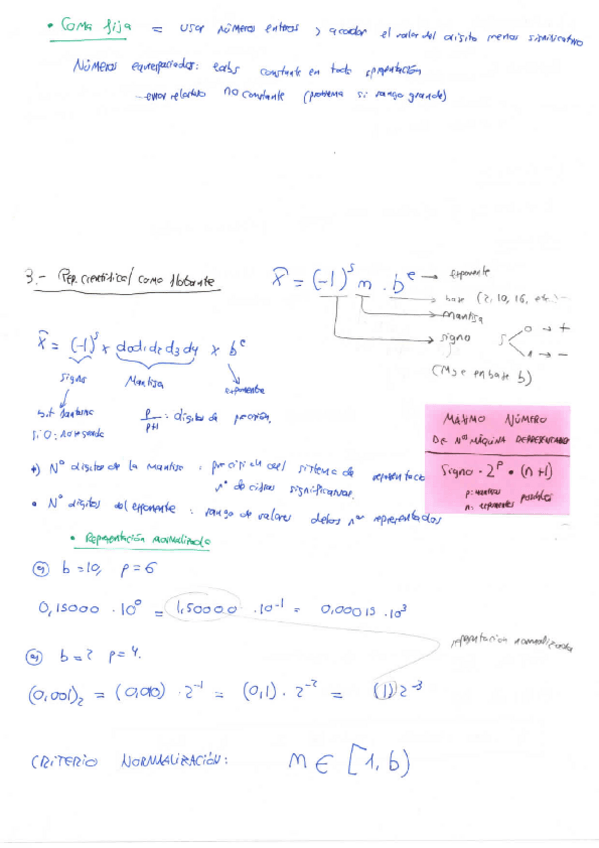 • Coma fija = usar números enteros y acordar el valor del dígito menos significativo
Números equiespaciados: eabs constante en toda representación
→ error relativo no constante (problema si rango grande)
3.- Rep. científica / coma flotante
x̂ = (-1)^s m · b^e → exponente
→ base (2, 10, 16, etc.)
→ mantisa
→ signo s < 0 → +
1 → -
(M y e en base b)
x̂ = (-1)^s × d0d1d2d3d4 × b^e
signo Mantisa exponente
p : dígitos de precisión
MÁXIMO NÚMERO
DE Nos MÁQUINA
Signo · 2^p · (n+1)
p: mantisas
n: exponentes posibles
•) Nº dígitos de la mantisa : precisión del sistema de representación
nº de cifras significativas.
• Nº dígitos del exponente : rango de valores de los nº representados
• Representación normalizada
ej b = 10, p = 6
0,15000 · 10^0 = 1,50000 · 10^-1 = 0,00015 · 10^3
representación normalizada
ej b = 2 p = 4.
(0,001)_2 = (0,010) · 2^-1 = (0,1) · 2^-2 = (1) 2^-3
CRITERIO NORMALIZACIÓN: m ∈ [1, b)